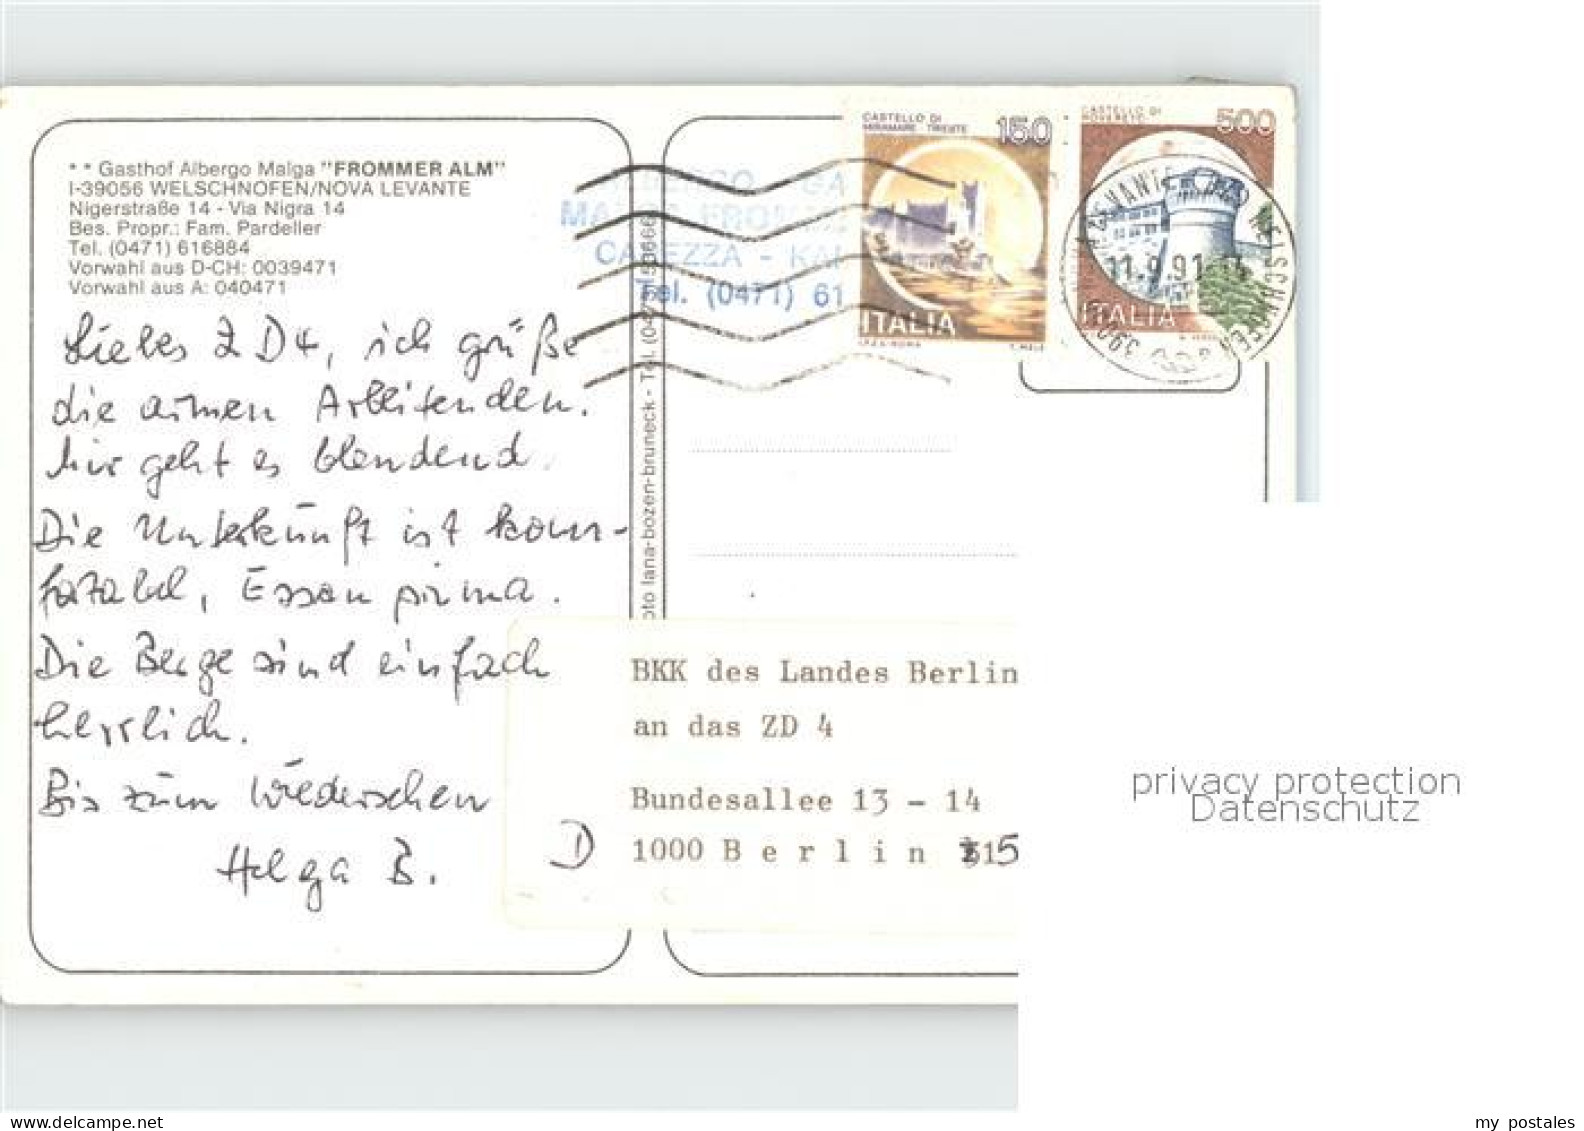 * * Gasthof Albergo Malga "FROMMER ALM"
I-39056 WELSCHNOFEN/NOVA LEVANTE
Nigerstraße 14 - Via Nigra 14
Bes. Propr.: Fam. Pardeller
Tel. (0471) 616884
Vorwahl aus D-CH: 0039471
Vorwahl aus A: 040471
Liebes ZD4, ich grüße
die armen Arbeitenden.
Mir geht es blendend.
Die Unterkunft ist kom-
fortabel, Essen prima.
Die Berge sind einfach
herrlich.
Bis zum Wiedersehen
Helga B.
oto lana-bozen-bruneck - Tel. (0474)
ALBERGO GA
MALGA FROMM
CAREZZA - KAR
Tel. (0471) 61
CASTELLO DI
MIRAMARE TRIESTE
150
ITALIA
I.P.Z.S. ROMA
CASTELLO DI
ROVERETO
500
ITALIA
NOVA LEVANTE (BZ) WELSCHNOFEN
11.9.91
390
BKK des Landes Berlin
an das ZD 4
Bundesallee 13 - 14
D
1000 Berlin 15
privacy protection
Datenschutz
my postales